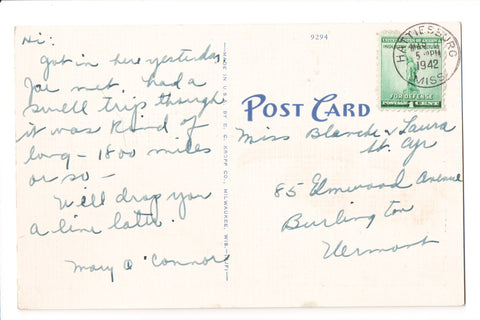 Hi:
Got in here yesterday
Joe met. had a
swell trip though
it was kind of
long - 1800 miles
or so -
Will drop you
a line later.
Mary O'Connor
9294
MADE IN U.S.A. BY E. C. KROPP CO., MILWAUKEE, WIS.
POST CARD
HATTIESBURG
5 PM
1942
MISS.
UNITED STATES OF AMERICA
INDUSTRY AGRICULTURE
FOR DEFENSE
POSTAGE 1 CENT
Miss Blanche & Laura
St. Cyr
85 Elmwood Avenue
Burlington
Vermont